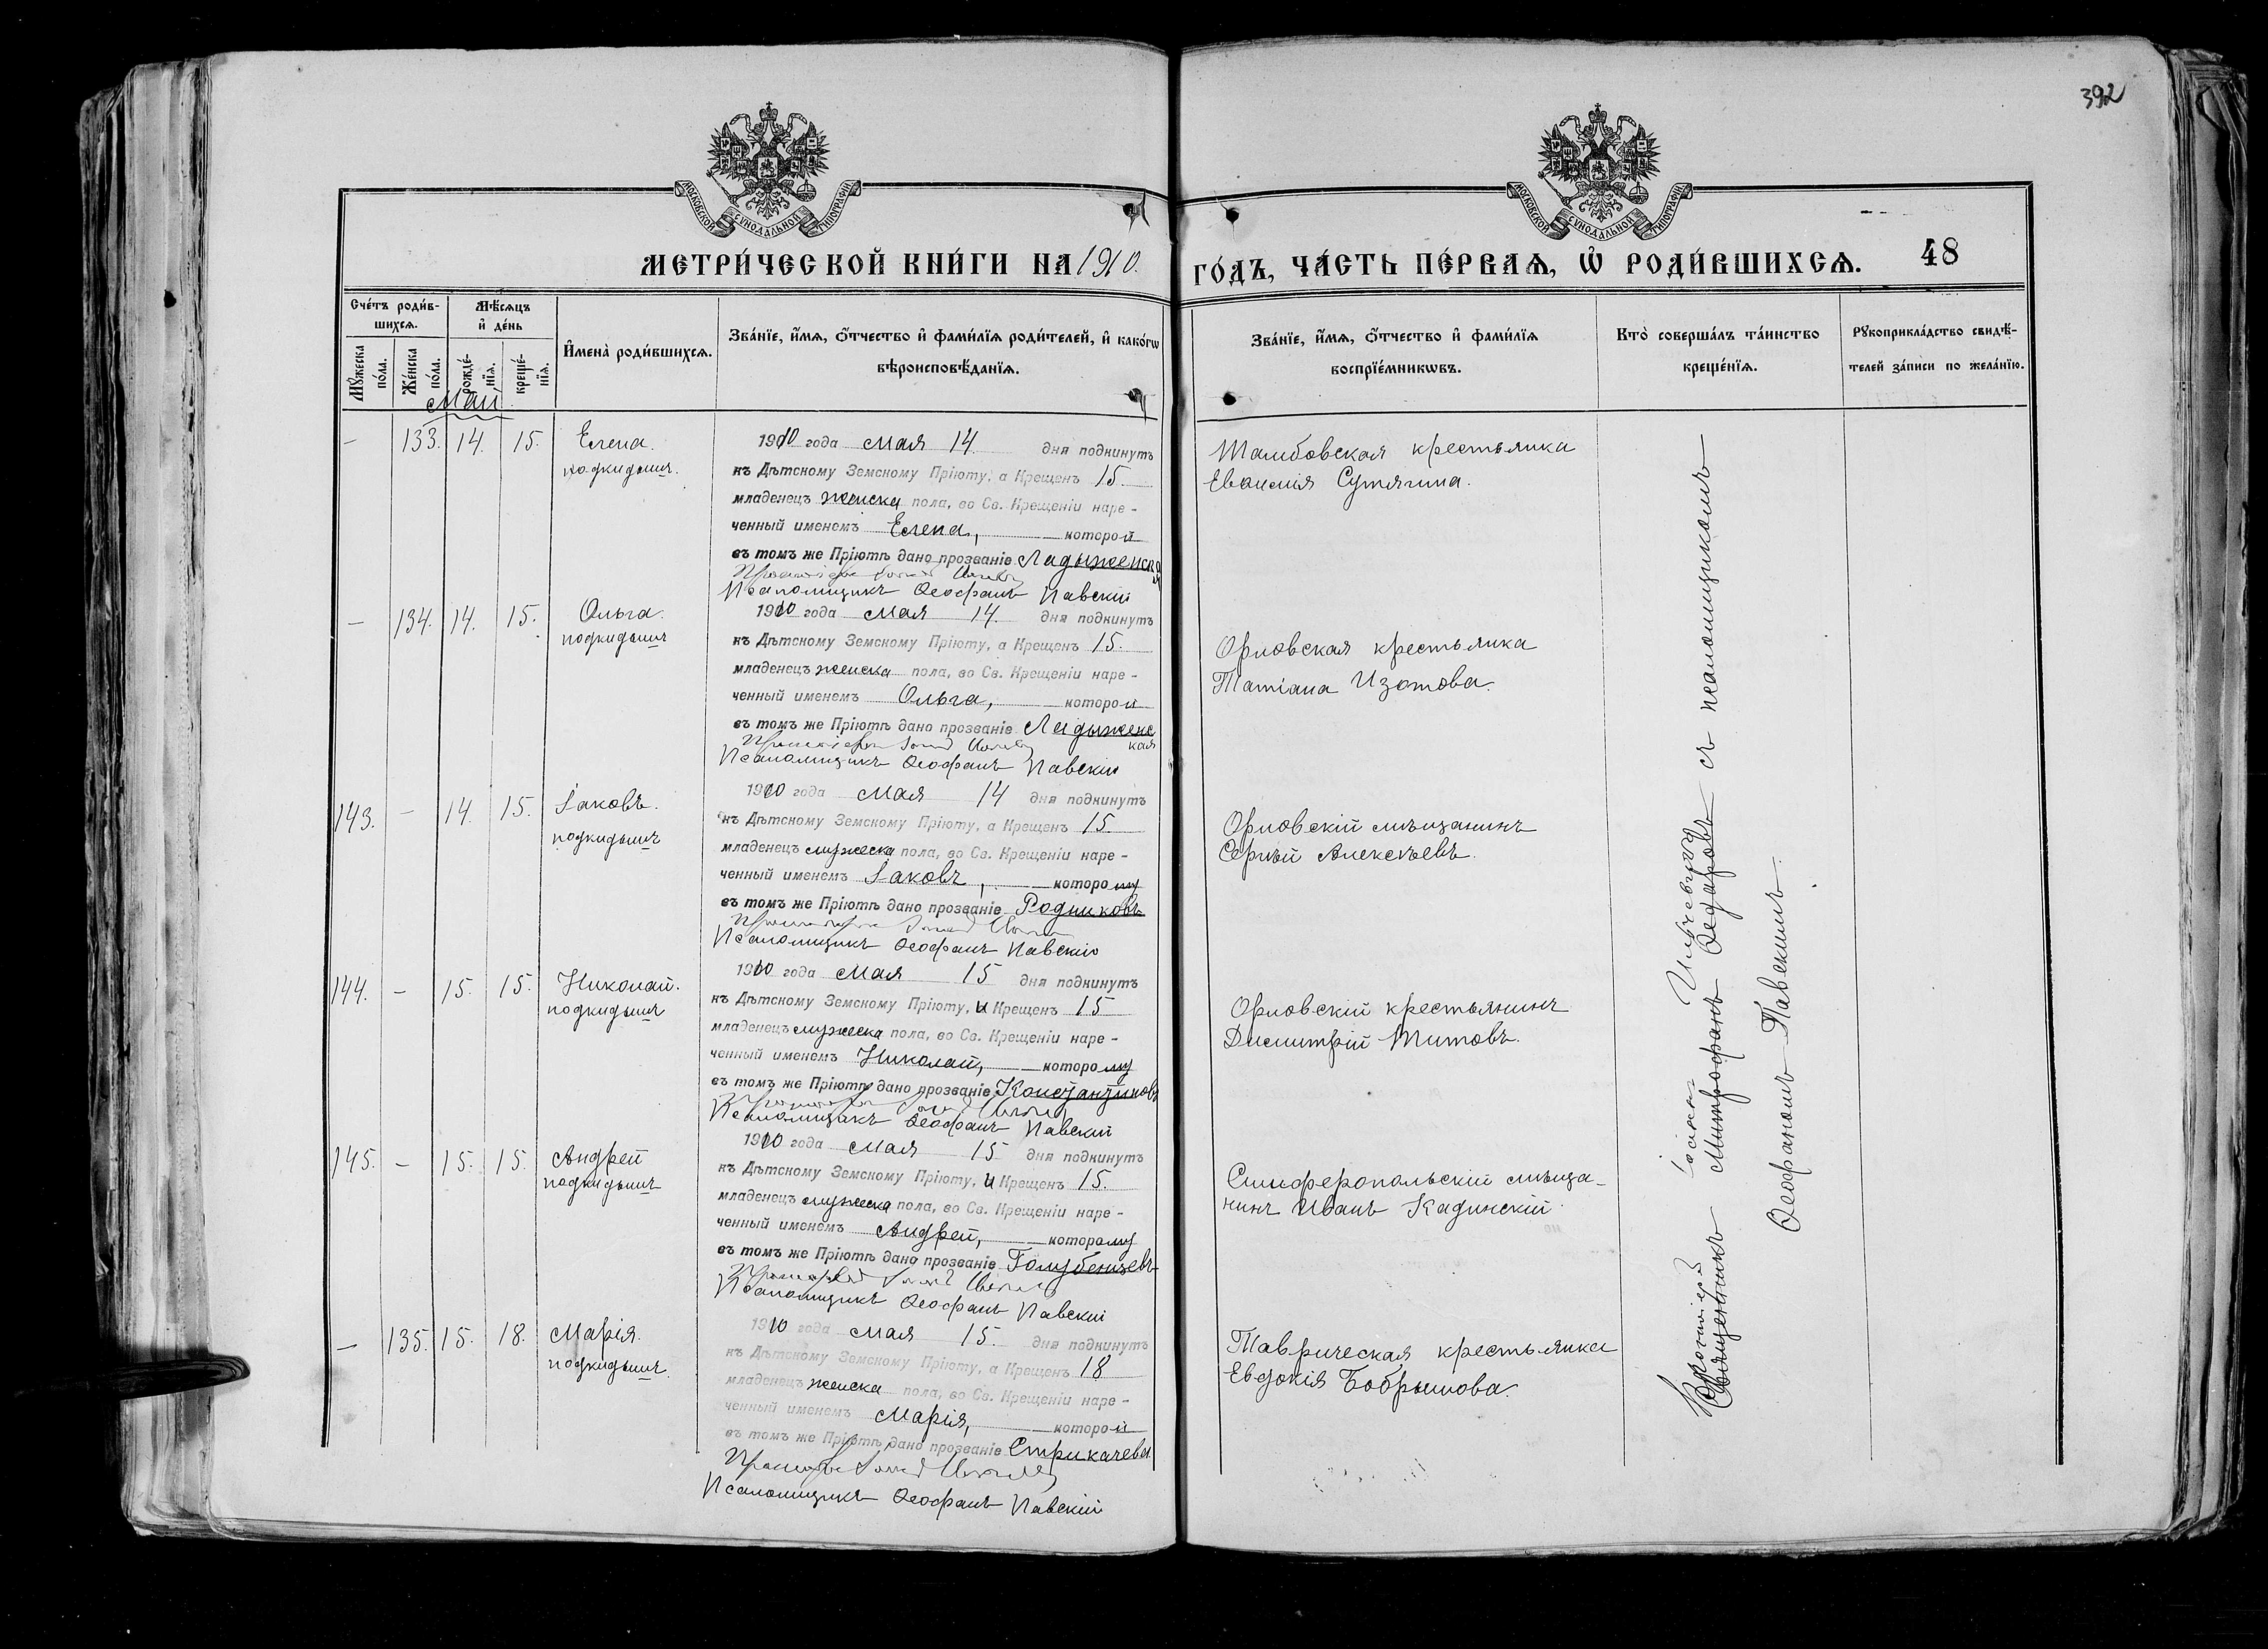 392
МОСКОВСКОЙ СѴНОДАЛЬНОЙ ТИПОГРАФІИ
МОСКОВСКОЙ СѴНОДАЛЬНОЙ ТИПОГРАФІИ
МЕТРИ́ЧЕСКОЙ КНИ́ГИ НА 1910. ГО́ДЪ, ЧА́СТЬ ПЕ́РВАѦ, Ѡ҆ РОДИ́ВШИХСѦ. 48
Сче́тъ роди́в-
шихсѧ.
Мѣ́сѧцъ
и҆ де́нь
Мꙋ́жеска
по́ла.
Же́нска
по́ла.
рожде́-
нїѧ.
креще́-
нїѧ.
И҆мена̀ роди́вшихсѧ.
Зва́нїе, и҆́мѧ, ѻ҆́тчество и҆ фами́лїѧ роди́телей, и҆ како́гѡ
вѣроисповѣ́данїѧ.
Зва́нїе, и҆́мѧ, ѻ҆́тчество и҆ фами́лїѧ
воспрїе́мникѡвъ.
Кто̀ соверша́лъ та́инство
креще́нїѧ.
Рꙋкоприкла́дство свидѣ́-
телей за́писи по жела́нїю.
Май
— 133. 14. 15. Елена.
подкидышъ.
1910 года Мая 14 дня подкинутъ
къ Дѣтскому Земскому Пріюту, а Крещенъ 15.
младенецъ женска пола, во Св. Крещеніи наре-
ченный именемъ Елена, которой
въ томъ же Пріютѣ дано прозваніе Ладыженская
Псаломщикъ Ѳеофанъ Павскій
Тамбовская крестьянка
Евѳимія Сутягина.
— 134. 14. 15. Ольга.
подкидышъ
1910 года Мая 14. дня подкинутъ
къ Дѣтскому Земскому Пріюту, а Крещенъ 15.
младенецъ женска пола, во Св. Крещеніи наре-
ченный именемъ Ольга, которой
въ томъ же Пріютѣ дано прозваніе Ладыженс
кая
Псаломщикъ Ѳеофанъ Павскій
Орловская крестьянка
Татіана Изотова.
143. — 14. 15. Іаковъ.
подкидышъ
1910 года Мая 14 дня подкинутъ
къ Дѣтскому Земскому Пріюту, а Крещенъ 15.
младенецъ мужеска пола, во Св. Крещеніи наре-
ченный именемъ Іаковъ, которому
въ томъ же Пріютѣ дано прозваніе Родниковъ
Псаломщикъ Ѳеофанъ Павскій
Орловскій мѣщанинъ
Сергѣй Алексѣевъ.
144. — 15. 15. Николай.
подкидышъ
1910 года Мая 15 дня подкинутъ
къ Дѣтскому Земскому Пріюту, и Крещенъ 15
младенецъ мужеска пола, во Св. Крещеніи наре-
ченный именемъ Николай, которому
въ томъ же Пріютѣ дано прозваніе Константиновъ
Псаломщикъ Ѳеофанъ Павскій
Орловскій крестьянинъ
Димитрій Титовъ.
145. — 15. 15. Андрей
подкидышъ
1910 года Мая 15 дня подкинутъ
къ Дѣтскому Земскому Пріюту, и Крещенъ 15.
младенецъ мужеска пола, во Св. Крещеніи наре-
ченный именемъ Андрей, которому
въ томъ же Пріютѣ дано прозваніе Голубенцевъ
Псаломщикъ Ѳеофанъ Павскій
Симферопольскій мѣща-
нинъ Иванъ Кадинскій.
— 135. 15. 18. Марія.
подкидышъ.
1910 года Мая 15. дня подкинутъ
къ Дѣтскому Земскому Пріюту, а Крещенъ 18
младенецъ женска пола, во Св. Крещеніи наре-
ченный именемъ Марія, которой
въ томъ же Пріютѣ дано прозваніе Стрикачева
Псаломщикъ Ѳеофанъ Павскій
Таврическая крестьянка
Евдокія Бобрышова.
Протоіерей Іоаннъ
Священникъ — Митрофанъ Ѳедоровъ — съ псаломщикомъ —
Ѳеофаномъ Павскимъ.